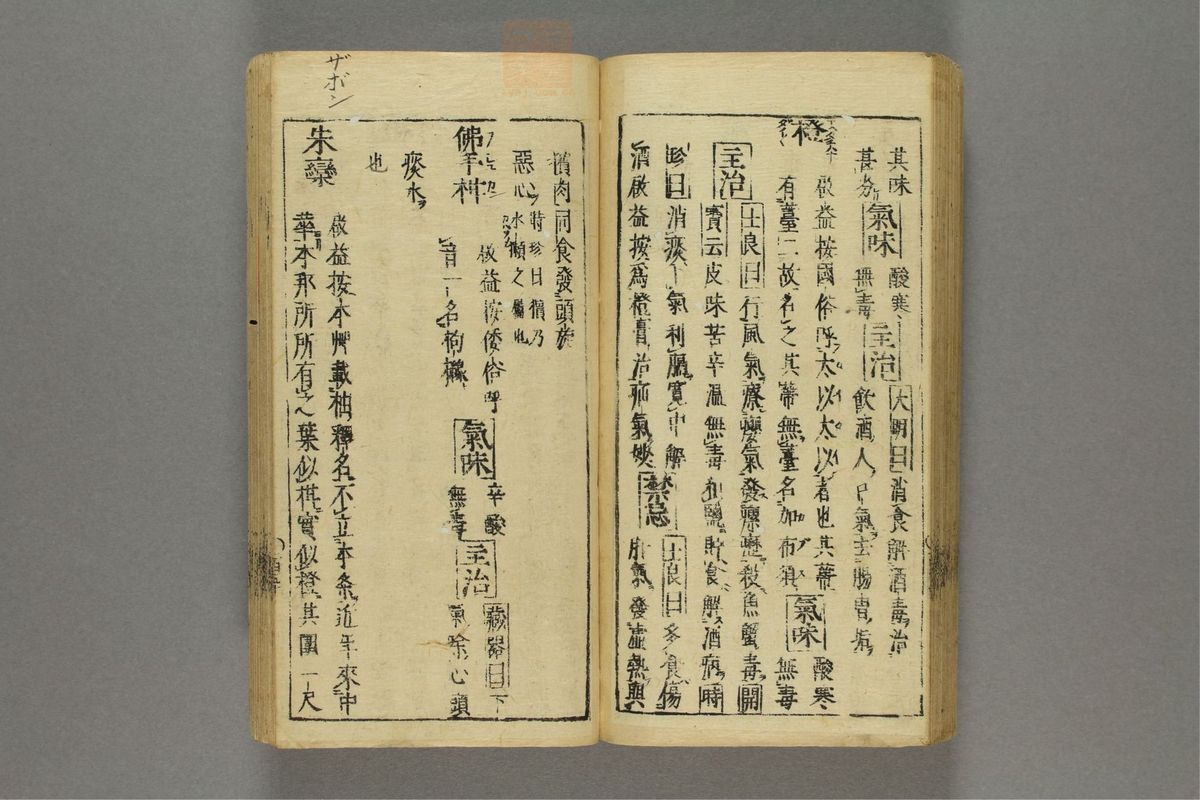 其味 酸寒 大明曰 消食解酒毒治
甚劣 氣味 無毒 主治 飲酒人口氣去腸胃
啟益按國俗呼太以太以者也其蒂
橙
有薹二故名之其蒂無薹名加布須 氣味 酸寒 無毒
主治 士良曰 行風氣療癭氣發瘰癧殺魚蟹毒 開
寶云皮味苦辛溫無毒和鹽貯食解酒病 時
珍曰 消痰下氣利膈寬中解
酒啟益按為橙膏治疝氣妙 禁忌 士良曰 多食傷
肝氣發虛熱與
檳肉同食發頭旋
惡心 時珍曰檳乃水獺之屬也
佛手柑 啟益按倭俗呼
音一名枸櫞 氣味 辛酸 無毒 主治 藏器曰 下
氣除心頭
痰水
也
ザボン
朱欒 啟益按本艸載柚釋名不立本條近年來中
華本那所所有之葉似柑實似橙其圍一尺